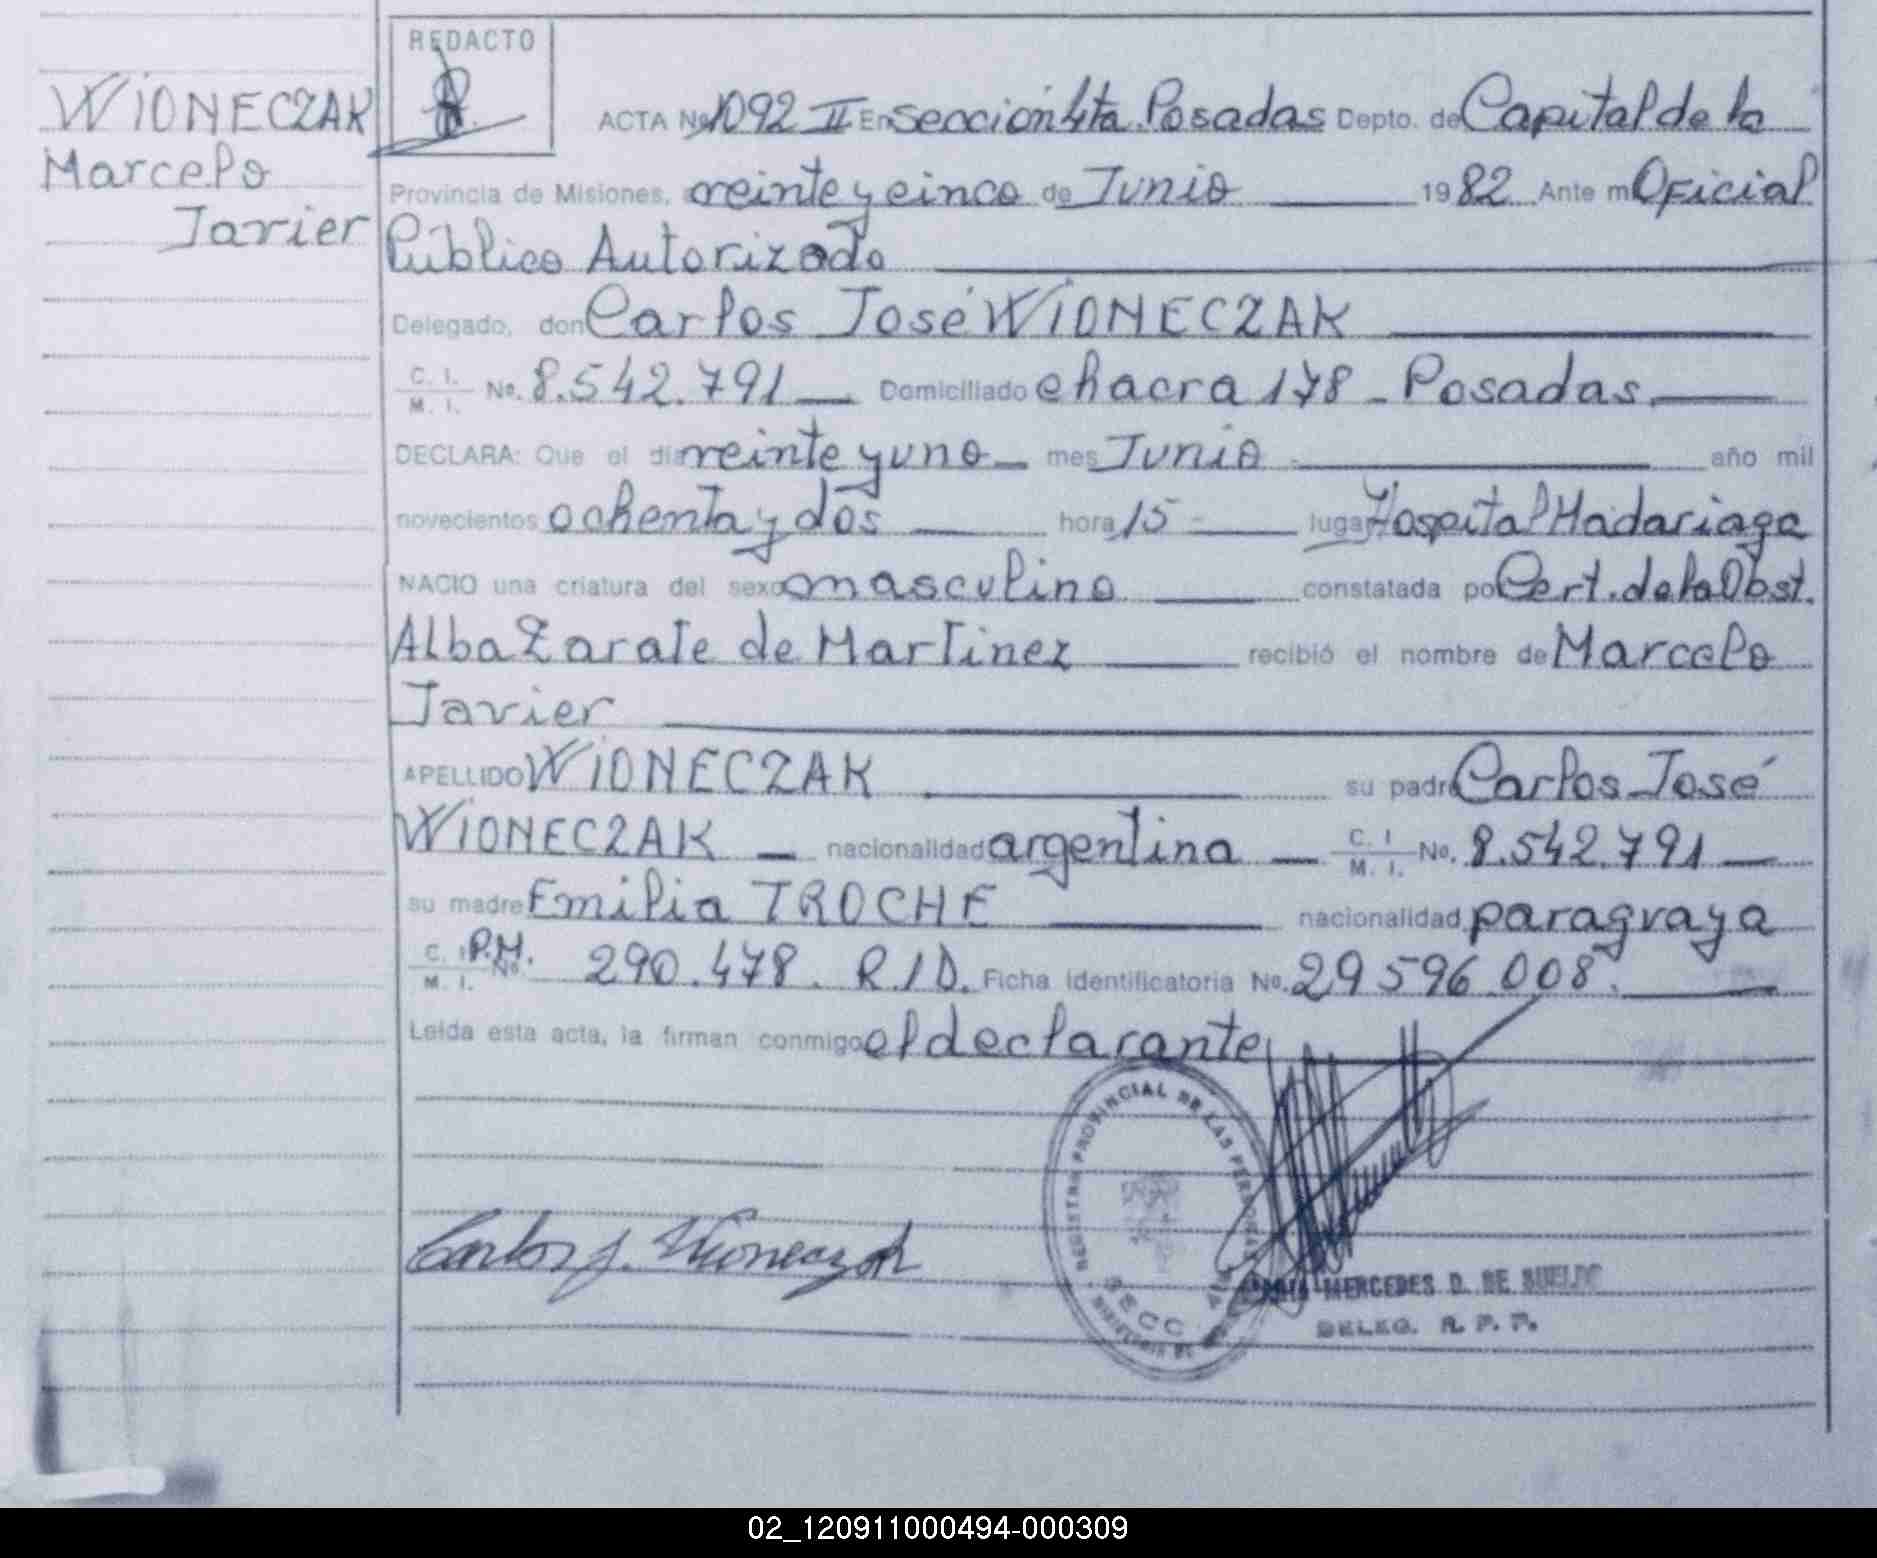 WIONECZAK
Marcelo
Javier
REDACTO
ACTA No. 1092 II En Sección 4ta. Posadas Depto. de Capital de la
Provincia de Misiones, a veinte y cinco de Junio 1982 Ante mi Oficial
Público Autorizado
Delegado, don Carlos José WIONECZAK
C. I. / M. I. No. 8.542.791 Domiciliado chacra 178 - Posadas
DECLARA: Que el día veinte y uno mes Junio año mil
novecientos ochenta y dos hora 15 lugar Hospital Madariaga
NACIO una criatura del sexo masculino constatada por Cert. de la Obst.
Alba Zarate de Martinez recibió el nombre de Marcelo
Javier
APELLIDO WIONECZAK su padre Carlos José
WIONECZAK nacionalidad argentina C. I. / M. I. No. 8.542.791
su madre Emilia TROCHE nacionalidad paraguaya
C. I. / M. I. No. P.M. 290.478. R.I.D. Ficha identificatoria No. 29 596 008.
Leída esta acta, la firman conmigo el declarante
REGISTRO PROVINCIAL DE LAS PERSONAS
SECC.
MINISTERIO DE
Carlos J. Wioneczak
MERCEDES D. DE SUELDO
DELEG. R. P. P.
02_120911000494-000309